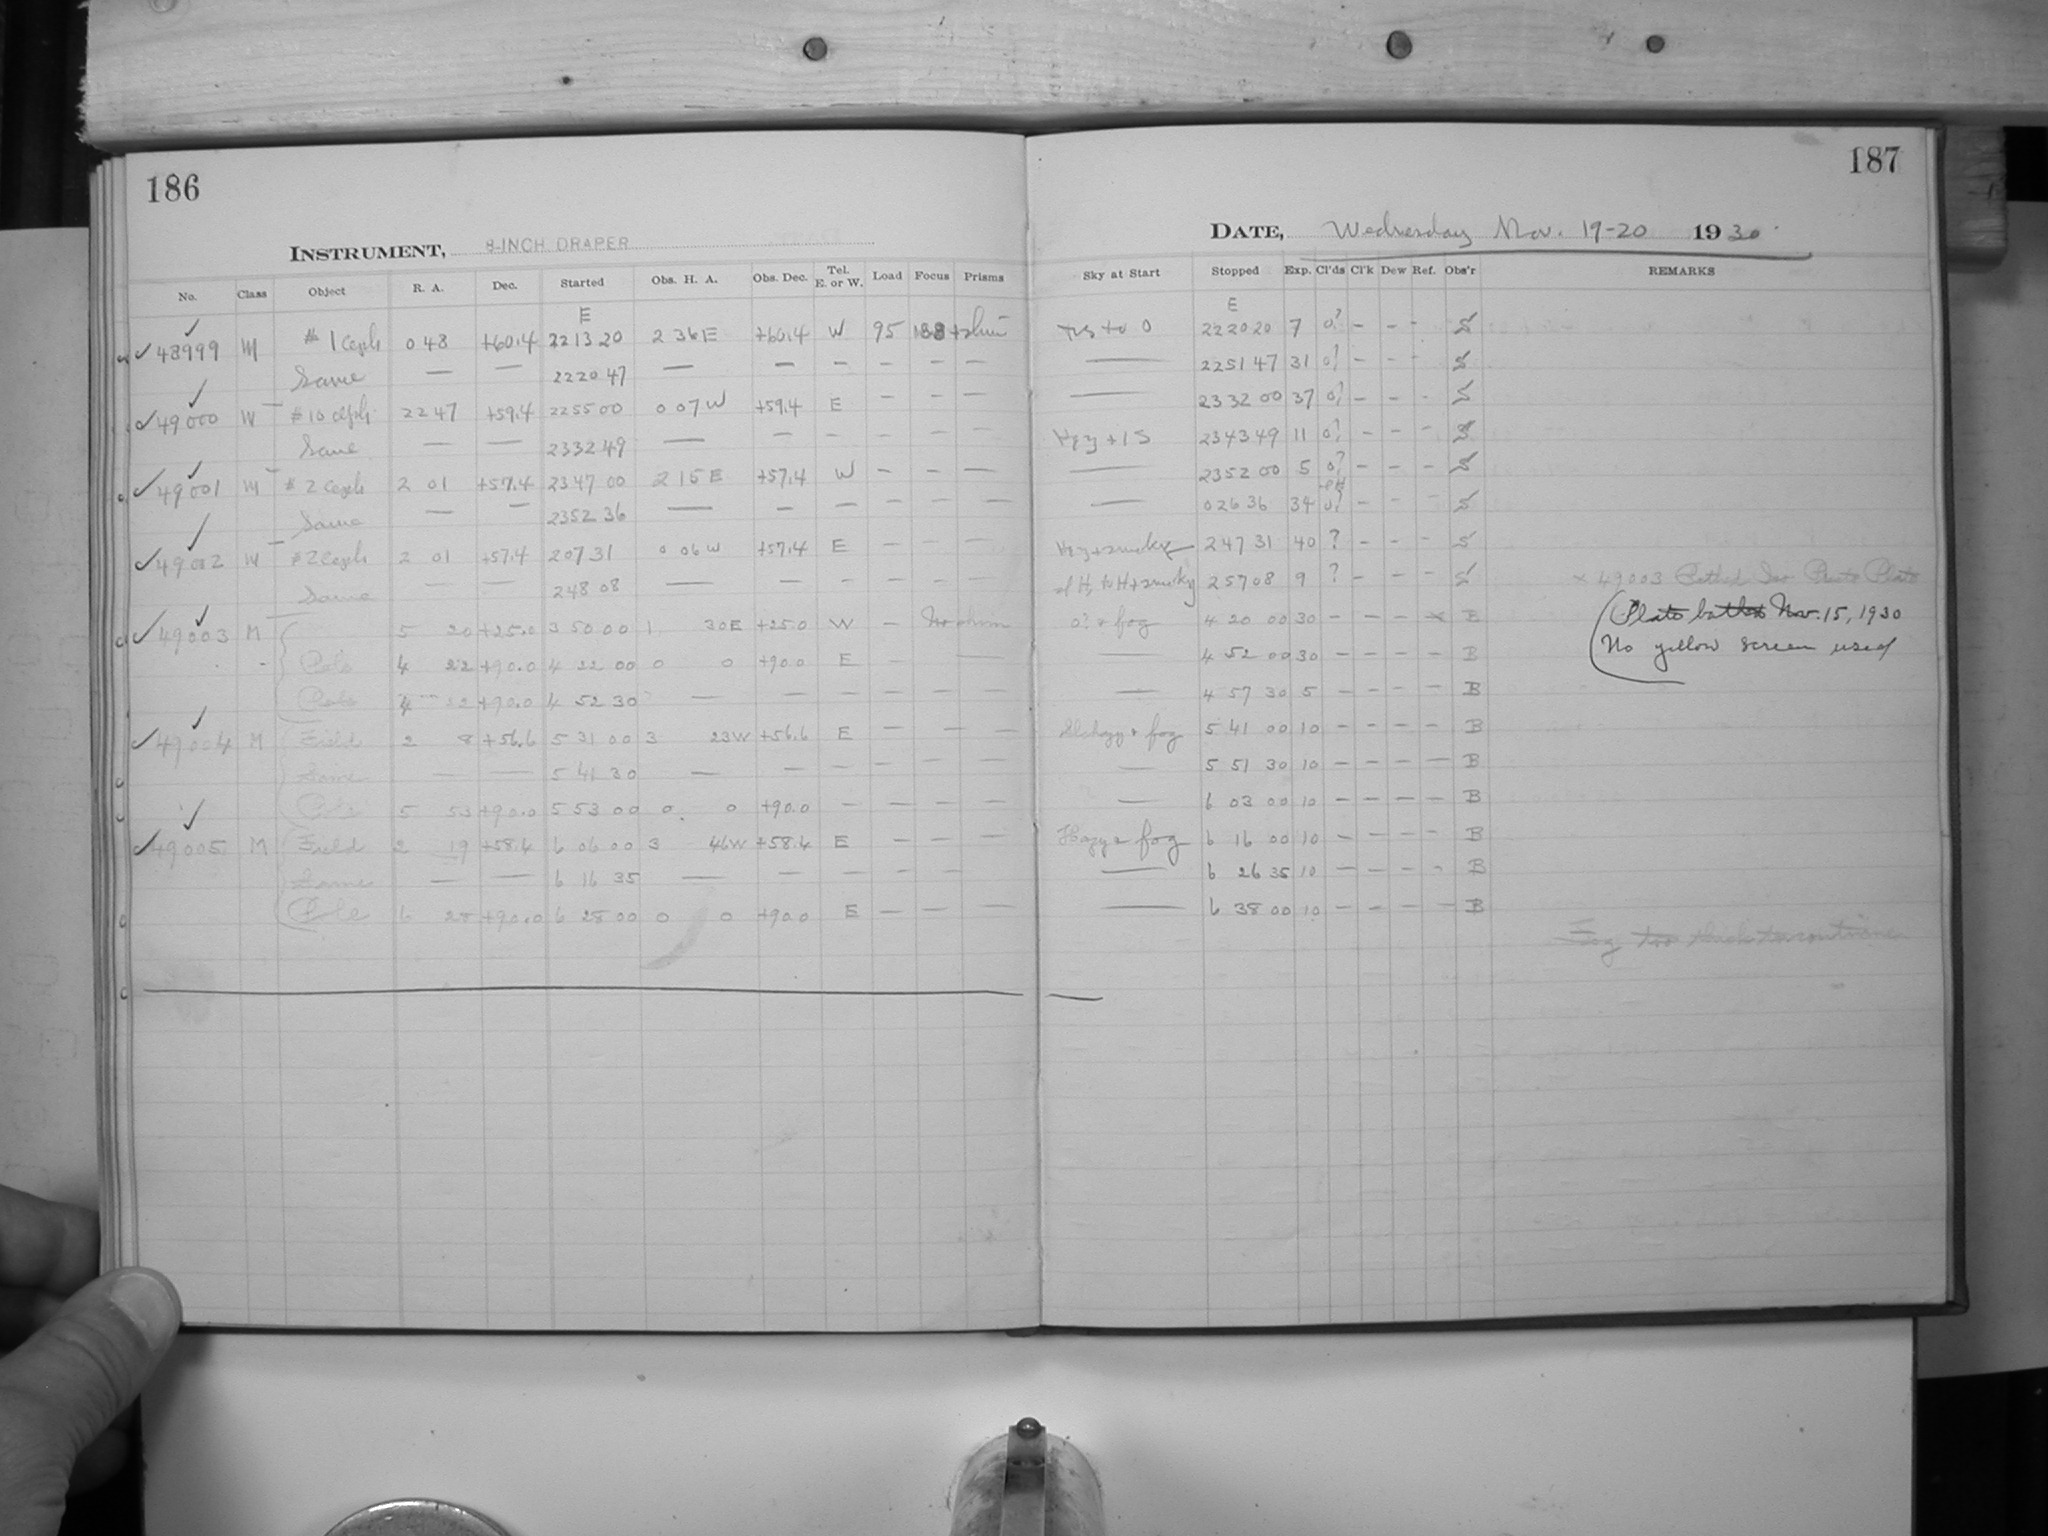 186
INSTRUMENT, 8-INCH DRAPER
No. Class Object R. A. Dec. Started Obs. H. A. Obs. Dec. Tel. E. or W. Load Focus Prisms
E
48999 M # 1 Ceph 0 48 +60.4 22 13 20 2 36 E +60.4 W 95
Same — — 22 20 47 — — — — — —
49000 M # 10 Ceph 22 47 +59.4 22 55 00 0 07 W +59.4 E — — —
Same — — 23 32 49 — — — — — —
49001 M # 2 Ceph 2 01 +57.4 23 47 00 2 15 E +57.4 W — — —
Same — — 23 52 36 — — — — — —
49002 M # 2 Ceph 2 01 +57.4 2 07 31 0 06 W +57.4 E — — —
Same — — 2 48 08 — — — — — —
49003 M 5 20 +25.0 3 50 00 1 30E +25.0 W — No shim
Pole 4 22 +90.0 4 22 00 0 0 +90.0 E — —
Pole 4 52 +90.0 4 52 30 — — — — — —
49004 M Field 2 8 +56.6 5 31 00 3 23W +56.6 E — — —
Same — — 5 41 30 — — — — — —
Pole 5 53 +90.0 5 53 00 0 0 +90.0 — — — —
49005 M Field 2 19 +58.4 6 06 00 3 46W +58.4 E — — —
Same — — 6 16 35 — — — — — —
Pole 6 28 +90.0 6 28 00 0 0 +90.0 E — — —
187
DATE, Wednesday Nov. 19-20 1930
Sky at Start Stopped Exp. Cl'ds Cl'k Dew Ref. Obs'r REMARKS
E
22 20 20 7 0? — — — S
— 22 51 47 31 0? — — — S
— 23 32 00 37 0? — — — S
23 43 49 11 0? — — — S
— 23 52 00 5 0? — — — S
— 0 26 36 34 0? — — — S
Hzy + smoky 2 47 31 40 ? — — — S
H + smoky 2 57 08 9 ? — — — S × 49003 Bathed Plate
0? & fog 4 20 00 30 — — — × B (Plate bathed Nov. 15, 1930
— 4 52 00 30 — — — — B No yellow screen used
— 4 57 30 5 — — — — B
Sl hazy & fog 5 41 00 10 — — — — B
— 5 51 30 10 — — — — B
— 6 03 00 10 — — — — B
Hazy & fog 6 16 00 10 — — — — B
— 6 26 35 10 — — — — B
— 6 38 00 10 — — — — B
Fog too thick to continue